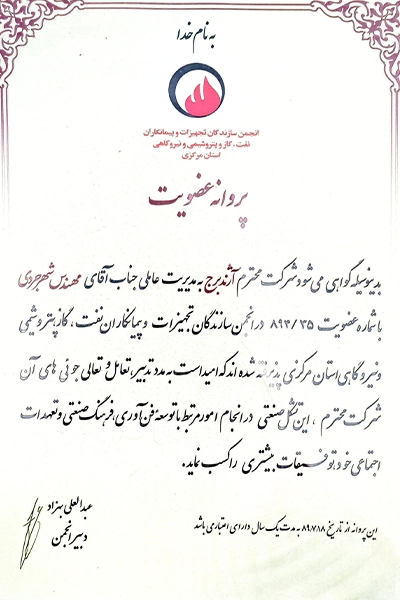 به نام خدا
انجمن سازندگان تجهیزات و پیمانکاران
نفت، گاز و پتروشیمی و نیروگاهی
استان مرکزی
پروانه عضویت
بدینوسیله گواهی می شود شرکت محترم آرند برج به مدیریت عاملی جناب آقای مهندس شهرجردی
با شماره عضویت ۸۹۴/۳۵ در انجمن سازندگان تجهیزات و پیمانکاران نفت، گاز، پتروشیمی
و نیروگاهی استان مرکزی پذیرفته شده اند که امید است به مدد تدبیر، تعامل و تعالی جوئی های آن
شرکت محترم ، این تشکل صنعتی در انجام امور مرتبط با توسعه فن آوری، فرهنگ صنعتی و تعهدات
اجتماعی خود، توفیقات بیشتری را کسب نماید.
عبدالعلی بهزاد
دبیر انجمن
این پروانه از تاریخ ۸۹/۷/۱۸ به مدت یک سال دارای اعتبار می باشد